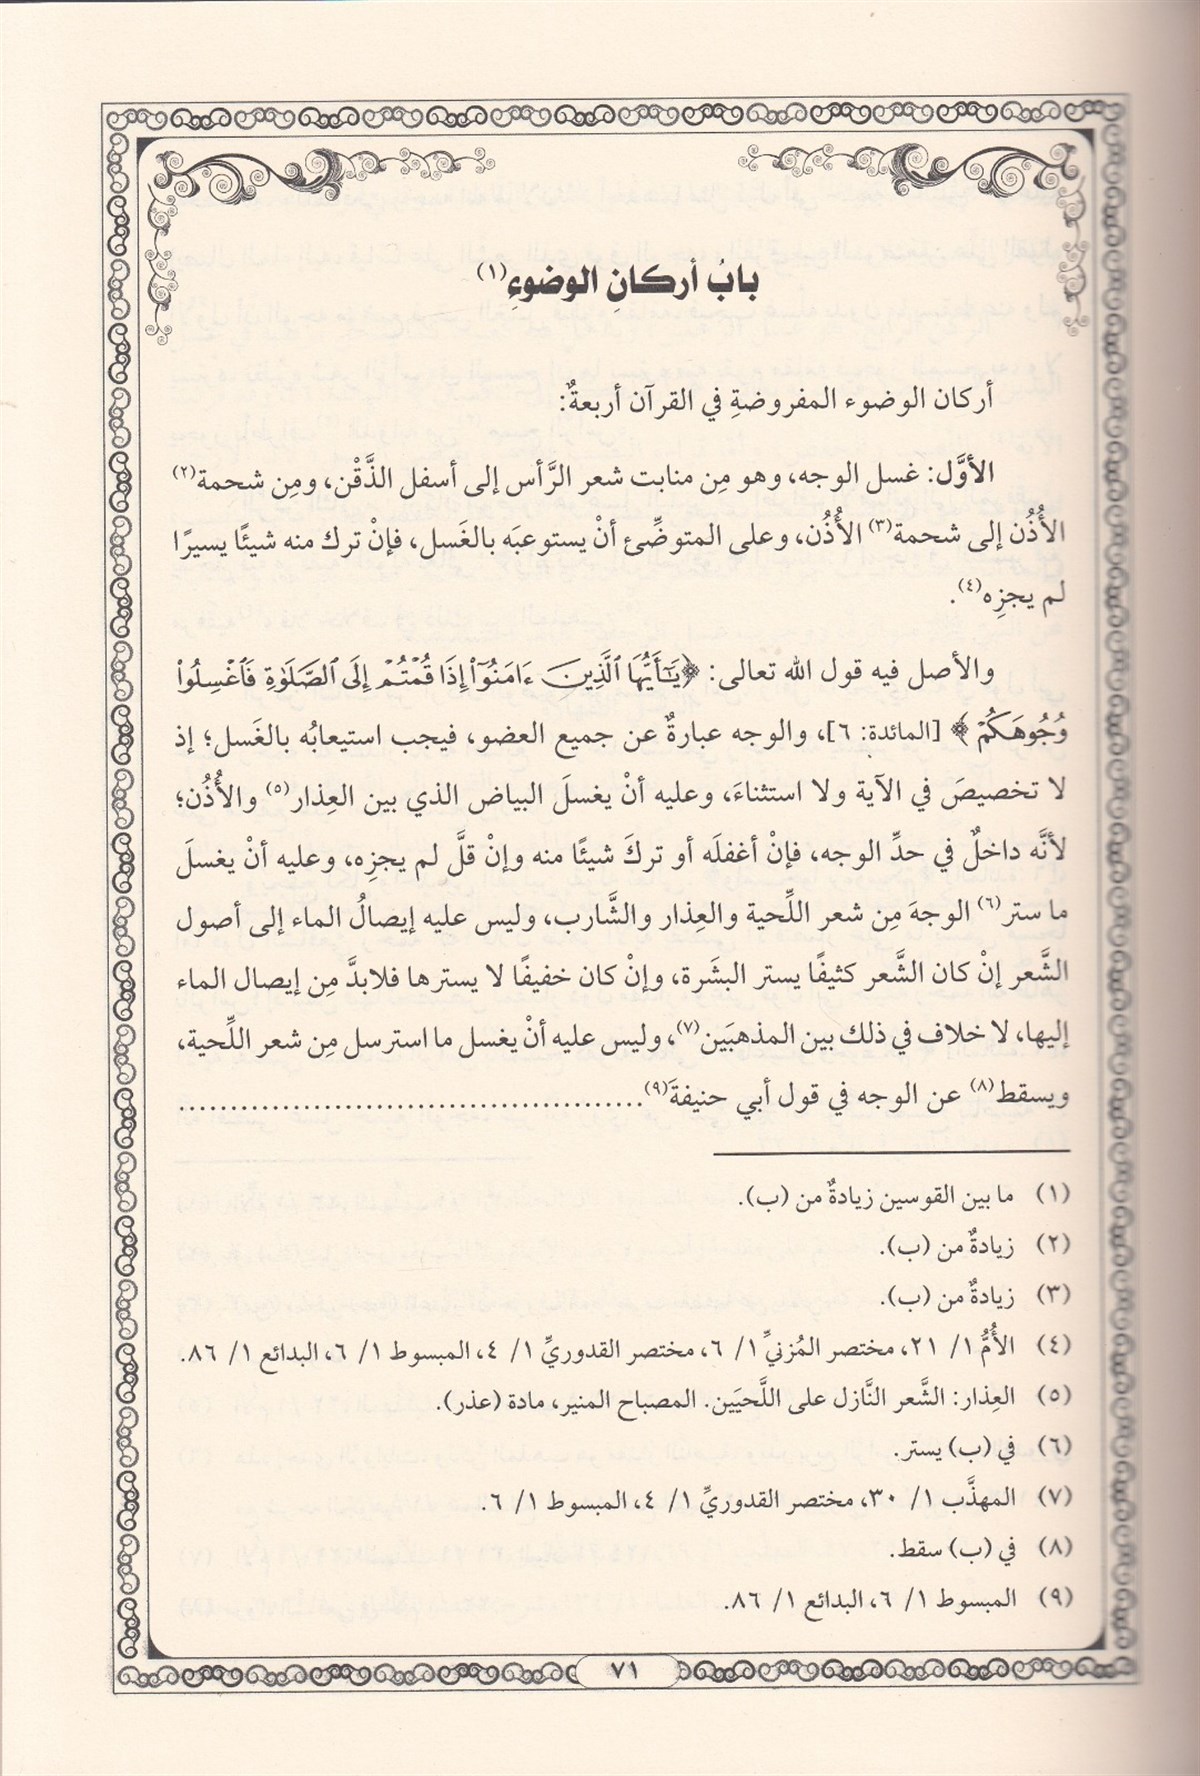 بابُ أركانِ الوضوءِ(١)
أركان الوضوء المفروضةِ في القرآن أربعةٌ:
الأوَّل: غسل الوجه، وهو مِن منابت شعر الرَّأس إلى أسفل الذَّقْن، ومِن شحمة(٢)
الأُذُن إلى شحمة(٣) الأُذُن، وعلى المتوضِّئ أنْ يستوعبَه بالغَسل، فإنْ ترك منه شيئًا يسيرًا
لم يجزِه(٤).
والأصل فيه قول الله تعالى: ﴿يَٰٓأَيُّهَا ٱلَّذِينَ ءَامَنُوٓا۟ إِذَا قُمۡتُمۡ إِلَى ٱلصَّلَوٰةِ فَٱغۡسِلُوا۟
وُجُوهَكُمۡ﴾ [المائدة: ٦]، والوجه عبارةٌ عن جميع العضو، فيجب استيعابُه بالغَسل؛ إذ
لا تخصيصَ في الآية ولا استثناءَ، وعليه أنْ يغسلَ البياض الذي بين العِذار(٥) والأُذُن؛
لأنَّه داخلٌ في حدِّ الوجه، فإنْ أغفلَه أو تركَ شيئًا منه وإنْ قلَّ لم يجزِه، وعليه أنْ يغسلَ
ما ستر(٦) الوجهَ مِن شعر اللِّحية والعِذار والشَّارب، وليس عليه إيصالُ الماء إلى أصول
الشَّعر إنْ كان الشَّعر كثيفًا يستر البشَرة، وإنْ كان خفيفًا لا يسترها فلابدَّ مِن إيصال الماء
إليها، لا خلاف في ذلك بين المذهبَين(٧)، وليس عليه أنْ يغسل ما استرسل مِن شعر اللِّحية،
ويسقط(٨) عن الوجه في قول أبي حنيفةَ(٩).............................................
(١) ما بين القوسين زيادةٌ من (ب).
(٢) زيادةٌ من (ب).
(٣) زيادةٌ من (ب).
(٤) الأُمُّ ١/ ٢١، مختصر المُزنيِّ ١/ ٦، مختصر القدوريِّ ١/ ٤، المبسوط ١/ ٦، البدائع ١/ ٨٦.
(٥) العِذار: الشَّعر النَّازل على اللَّحيَين. المصباح المنير، مادة (عذر).
(٦) في (ب) يستر.
(٧) المهذَّب ١/ ٣٠، مختصر القدوريِّ ١/ ٤، المبسوط ١/ ٦.
(٨) في (ب) سقط.
(٩) المبسوط ١/ ٦، البدائع ١/ ٨٦.
٧١